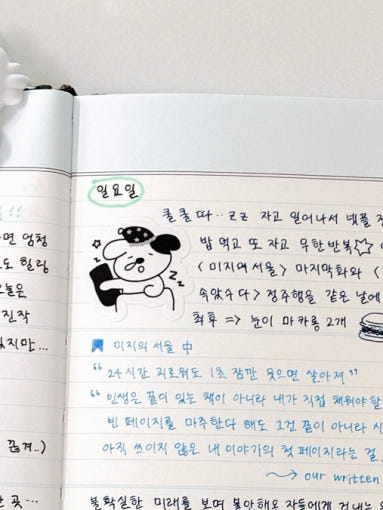 !!
라면 엄청
도 힐링
오늘은
진작
있지만...
끔겨..)
한 곳...
일요일
쿨쿨따.. zz 자고 일어나서 넷플
밥 먹고 또 자고 무한반복☆
zzz
<미지의 서울> 마지막화와 <
속았수다> 정주행을 같은 날에
최후 => 눈이 마카롱 2개
미지의 서울 中
“24시간 괴로워도 1초 잠깐 웃으면 살아져”
“인생은 끝이 있는 책이 아니라 내가 직접 채워야 할
빈 페이지를 마주한다 해도 그건 끝이 아니라 시
아직 쓰이지 않은 내 이야기의 첫 페이지라는 걸.
our written
불확실한 미래를 보며 불안해온 자들에게 건내는